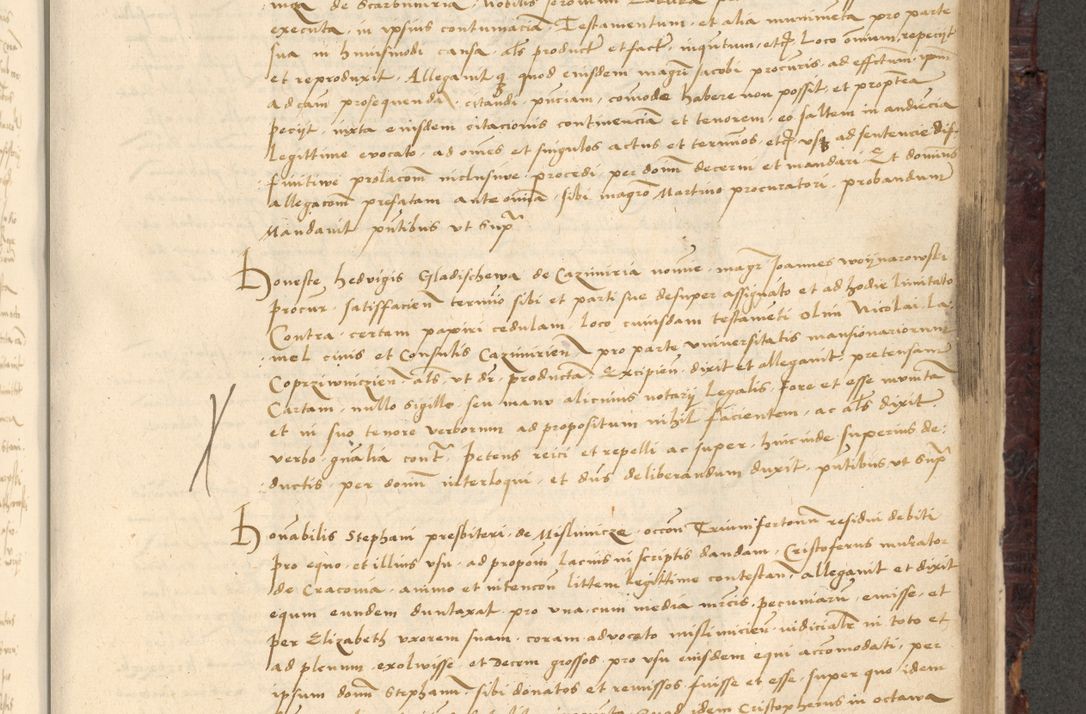 executa, in ipsius contumacia Testamentum et alia munimēta pro parte
sua in huiusmodi causa als product et fact, inqntum, etc Loco omniū repecijt
et reproduxit. Allegauit qz quod eiusdem magri Jacobi procuris, ad effctum ipm
ad eam prosequendā, citandi, pnciam, comode habere non possit, et proptea
pecijt, iuxta eiusdem citacionis continenciā et tenorem, eo saltem in audiēcia
Legittime euocato, ad omēs et singulos actus et termīos, etc vsqz ad sentencie dif-
finitiue prolacom inclusiue, procedi, per dom̄ decerni et mandari. Et dominus
allegacom prefatam ante omīa, sibi magrō Martino procuratori, probandum
Mandauit pntibus vt supra
Honeste Hedvigis Gladischewa de Cazimiria nomīe, magr Joannes Woijnarowski
procur, satisfacien termīo sibi et parti sue desuper assignato et ad hodie limitato
Contra, certam papiri cedulam, loco cuiusdam testamēti olim Nicolai La-
mel ciuis et Consulis Cazimirien, pro parte vniuersitatis mansionariorum
Coprziwniczien, als, vt dr, productā, Excipien, dixit et allegauit, pretensam
Cartam, nullo sigillo, seu manu alicuius notarij Legalis, fore et esse munitā
et in suo tenore verborum ad propositum nihil facientem, ac als dixit
verbo, gnālia contr, Petens reici et repelli ac super, hincinde superius de-
ductis, per dom̄ interloqui, et dns deliberandum duxit, pntibus vt supra
Honabilis Stephani presbiteri, de Mislimicze, occōn Trium fertonum residui debiti
pro equo, et illius vsu, ad proponm Lacius in scriptis dandam, Cristoferus murator
de Cracouia, animo et intencōn littem legittime contestan, allegauit et dixit
equm eundem duntaxat, pro vna cum media mrcis, pecuniarū, emisse, et
per Elizabeth vxorem suam, coram aduocato mislimicien, iudicialr in toto et
ad plenum, exolwisse, et Decem grossos, pro vsu eiusdem equi accomodati, per
ipsum dom̄ Stephanū, sibi donatos et remissos, fuisse et esse, super quo idem